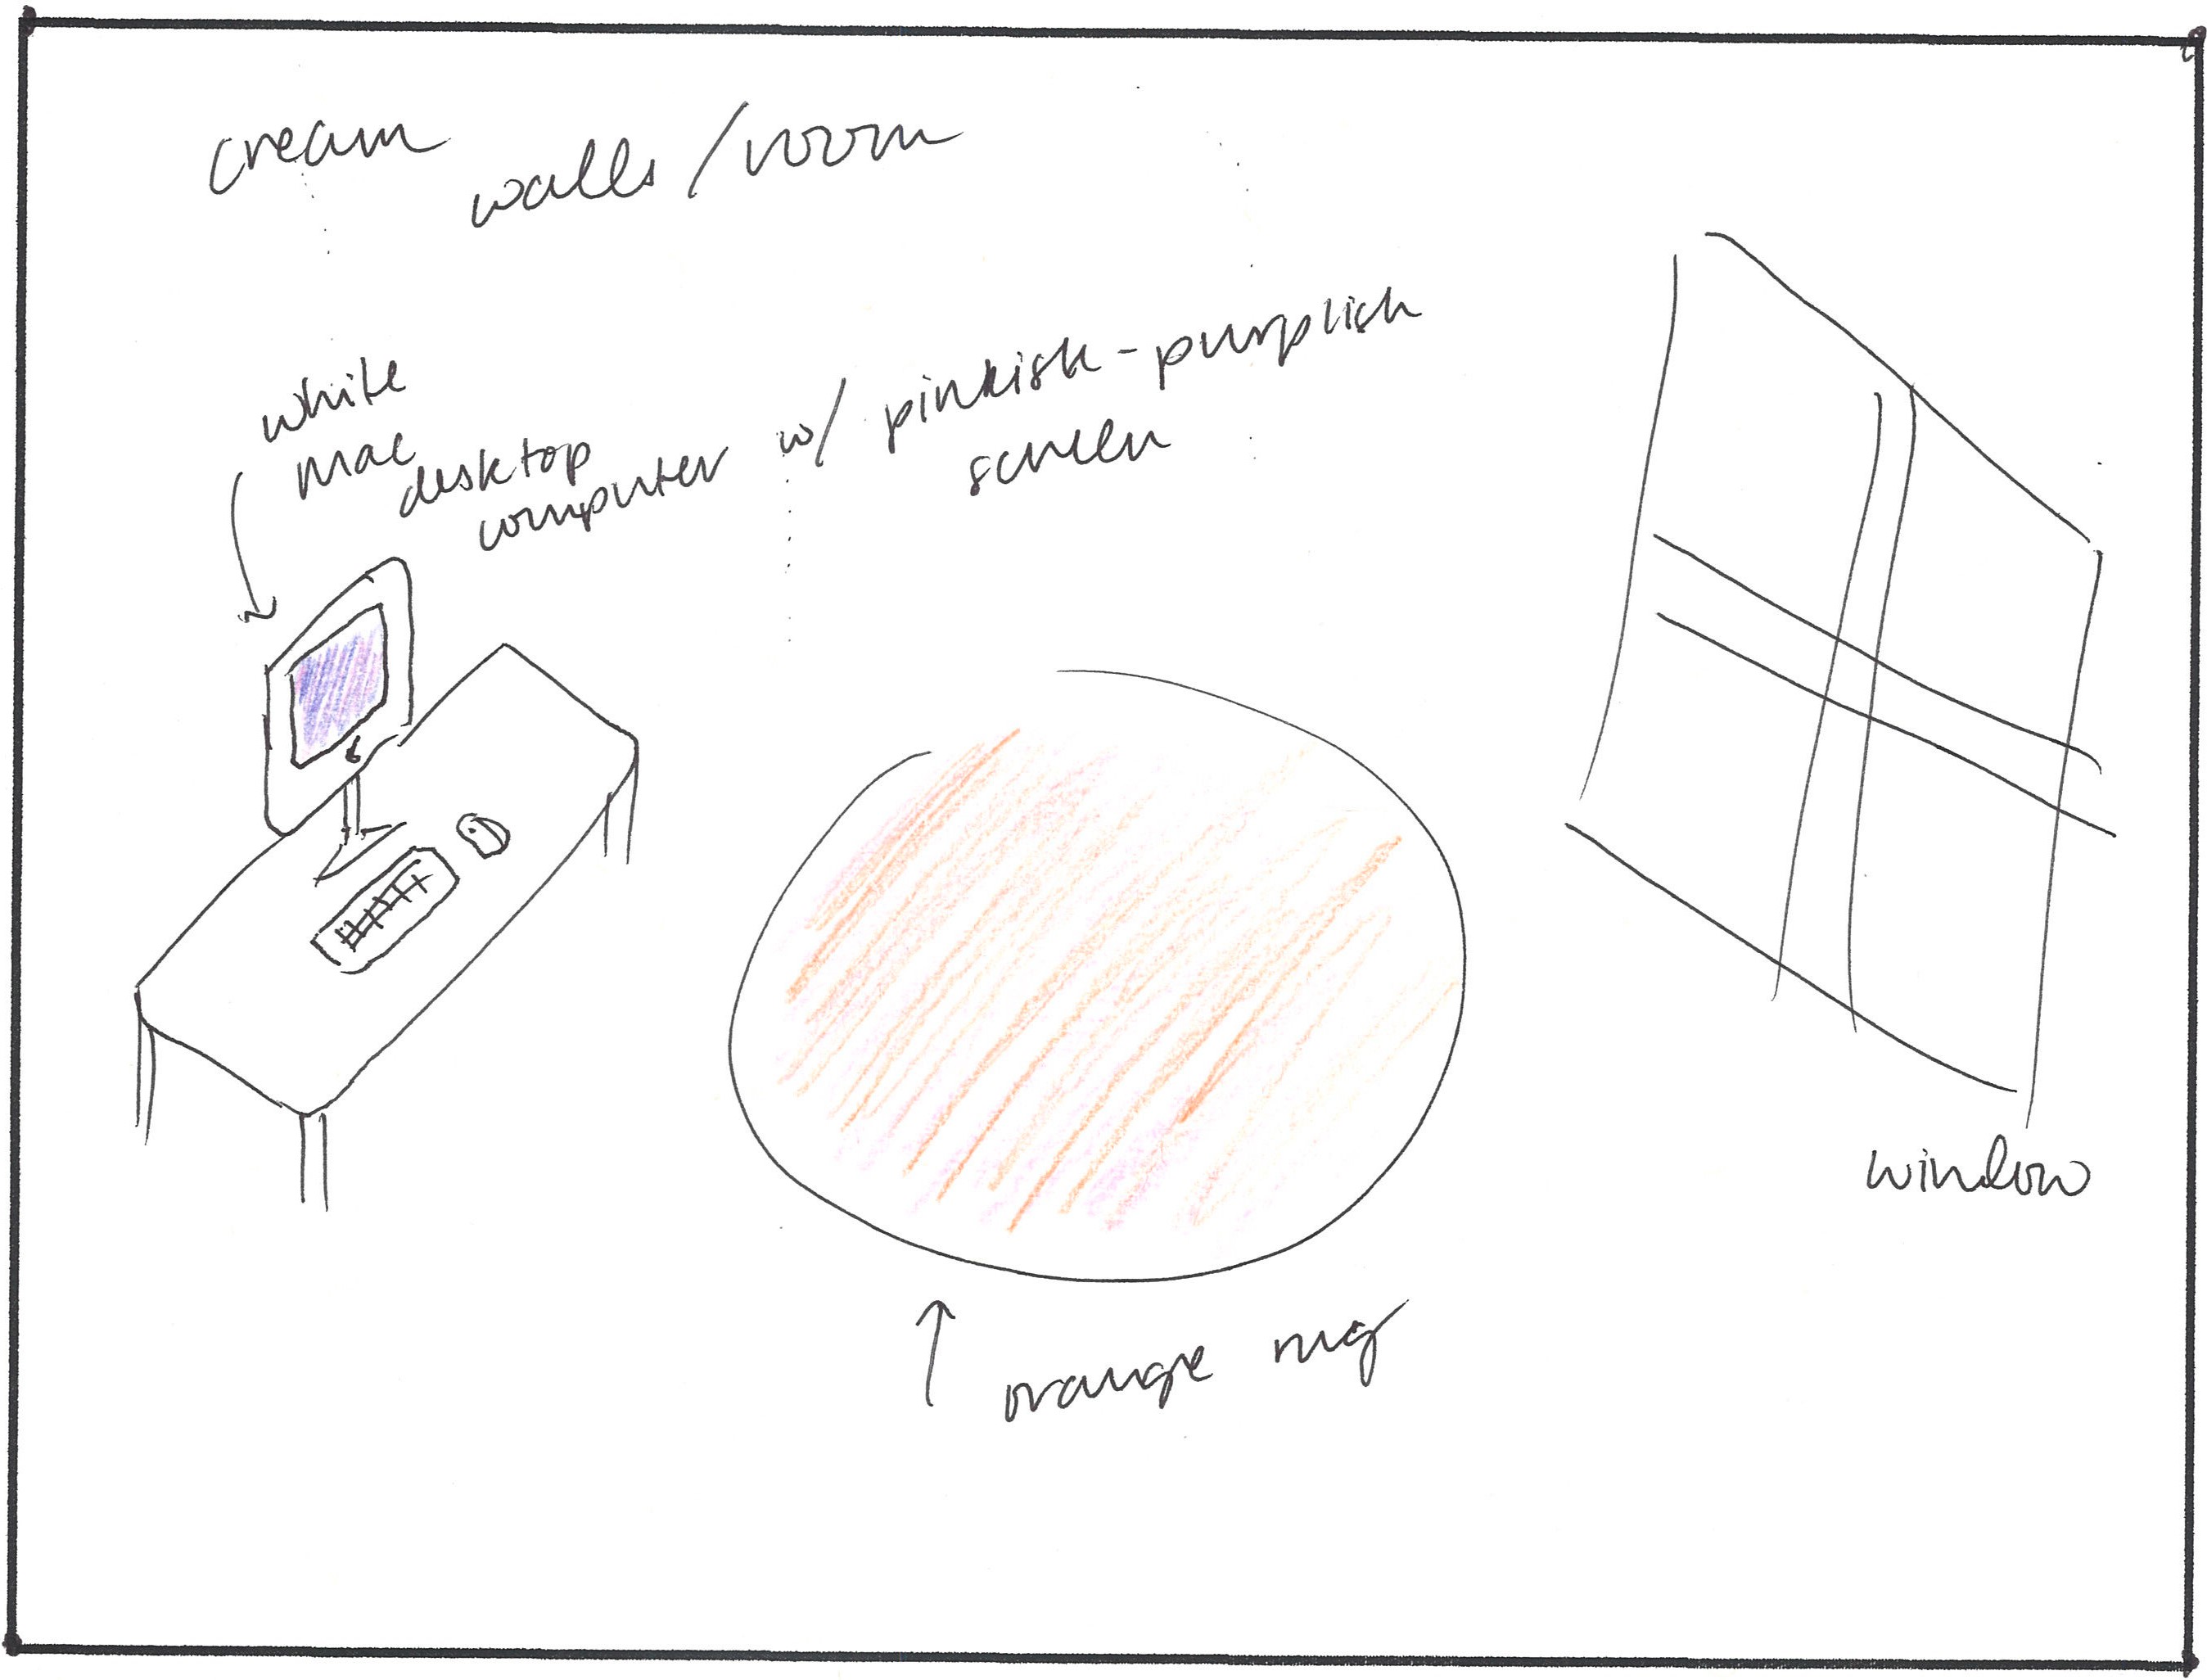 cream walls/room
white
mac
desktop
computer w/ pinkish-purplish
screen
window
orange rug